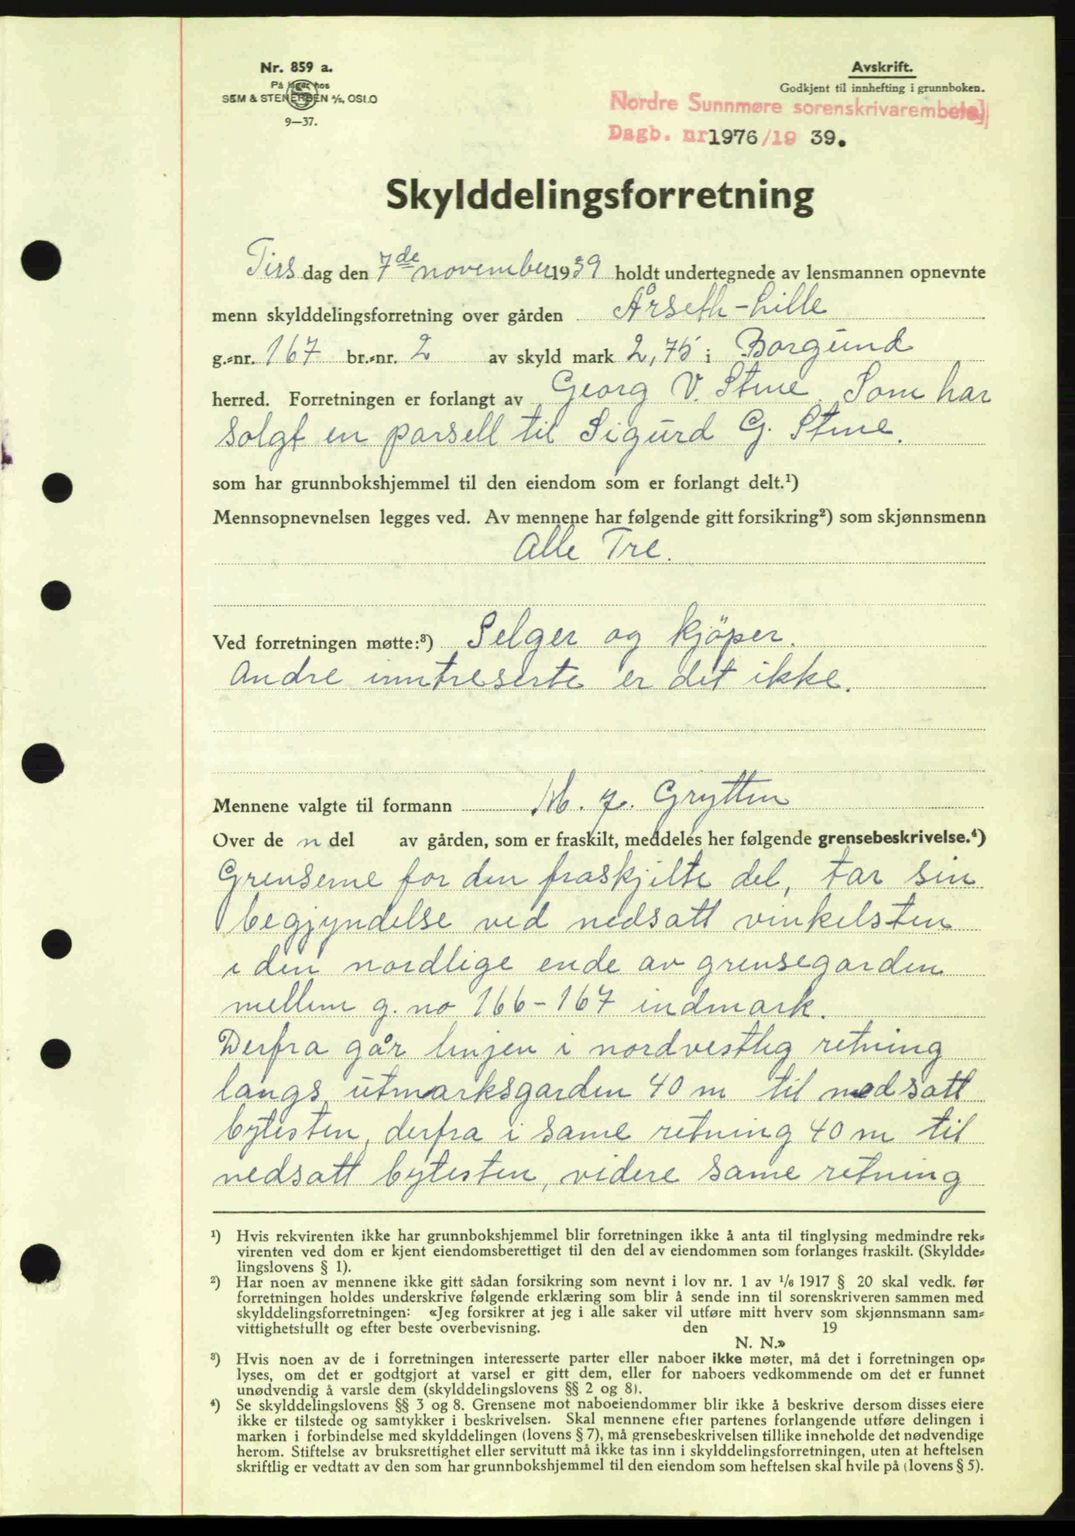 Nr. 859 a.
På lager hos
SEM & STENERSEN A/S, OSLO
9—37.
Avskrift.
Godkjent til innhefting i grunnboken.
Nordre Sunnmøre sorenskrivarembete
Dagb. nr 1976/19 39.
Skylddelingsforretning
Tirsdag den 7de november 1939 holdt undertegnede av lensmannen opnevnte
menn skylddelingsforretning over gården Årseth-Lille
g.-nr. 167 br.-nr. 2 av skyld mark 2,75 i Borgund
herred. Forretningen er forlangt av Georg V. Stine. Som har
solgt en parsell til Sigurd G. Stine.
som har grunnbokshjemmel til den eiendom som er forlangt delt.¹)
Mennsopnevnelsen legges ved. Av mennene har følgende gitt forsikring²) som skjønnsmenn
Alle Tre.
Ved forretningen møtte:³) Selger og kjöper.
Andre inntreserte er det ikke.
Mennene valgte til formann M. J. Grytten
Over de n del av gården, som er fraskilt, meddeles her følgende grensebeskrivelse.⁴)
Grensene for den fraskjilte del, tar sin
begjyndelse ved nedsatt vinkelsten
i den nordlige ende av grensegarden
mellem g. no 166-167 indmark.
Derfra går linjen i nordvestlig retning
langs utmarksgarden 40 m til nedsatt
bytesten, derfra i same retning 40 m til
nedsatt bytesten, videre same retning
¹) Hvis rekvirenten ikke har grunnbokshjemmel blir forretningen ikke å anta til tinglysing medmindre rek-
virenten ved dom er kjent eiendomsberettiget til den del av eiendommen som forlanges fraskilt. (Skyldde-
lingslovens § 1).
²) Har noen av mennene ikke gitt sådan forsikring som nevnt i lov nr. 1 av 1/6 1917 § 20 skal vedk. før
forretningen holdes underskrive følgende erklæring som blir å sende inn til sorenskriveren sammen med
skylddelingsforretningen: «Jeg forsikrer at jeg i alle saker vil utføre mitt hverv som skjønnsmann sam-
vittighetsfullt og efter beste overbevisning. den 19
N. N.»
³) Hvis noen av de i forretningen interesserte parter eller naboer ikke møter, må det i forretningen op-
lyses, om det er godtgjort at varsel er gitt dem, eller for naboers vedkommende om det er funnet
unødvendig å varsle dem (skylddelingslovens §§ 2 og 8).
⁴) Se skylddelingslovens §§ 3 og 8. Grensene mot naboeiendommer blir ikke å beskrive dersom disses eiere
ikke er tilstede og samtykker i beskrivelsen. Skal mennene efter partenes forlangende utføre delingen i
marken i forbindelse med skylddelingen (lovens § 7), må grensebeskrivelsen tillike inneholde det nødvendige
herom. Stiftelse av bruksrettighet eller servitutt må ikke tas inn i skylddelingsforretningen, uten at heftelsen
skriftlig er vedtatt av den som har grunnbokshjemmel til den eiendom som heftelsen skal hvile på (lovens § 5).